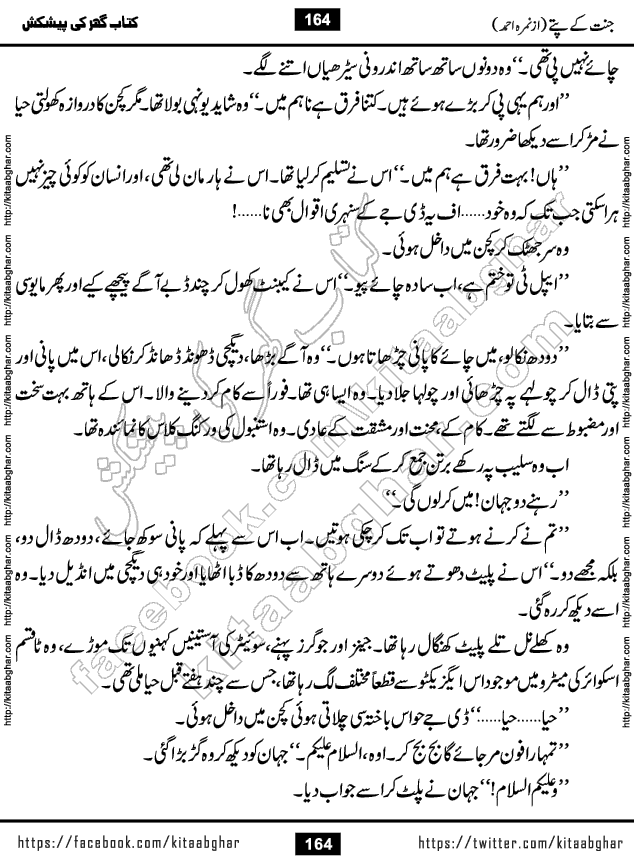 کتاب گھر کی پیشکش
164
جنت کے پتے (از نمرہ احمد)
چائے نہیں پی تھی۔“ وہ دونوں ساتھ ساتھ اندرونی سیڑھیاں اترنے لگے۔
”اور ہم یہی پی کر بڑے ہوئے ہیں۔ کتنا فرق ہے نا ہم میں۔“ وہ شاید یونہی بولا تھا۔ مگر کچن کا دروازہ کھولتی حیا
نے مڑ کر اسے دیکھا ضرور تھا۔
”ہاں! بہت فرق ہے ہم میں۔“ اس نے تسلیم کر لیا تھا۔ اس نے ہار مان لی تھی، اور انسان کو کوئی چیز نہیں
ہرا سکتی جب تک کہ وہ خود......اف یہ ڈی جے کے سنہری اقوال بھی نا......!
وہ سر جھٹک کر کچن میں داخل ہوئی۔
”ایپل ٹی تو ختم ہے، اب سادہ چائے پیو۔“ اس نے کیبنٹ کھول کر چند ڈبے آگے پیچھے کیے اور پھر مایوسی
سے بتایا۔
”دودھ نکالو، میں چائے کا پانی چڑھاتا ہوں۔“ وہ آگے بڑھا، دیگچی ڈھونڈ ڈھانڈ کر نکالی، اس میں پانی اور
پتی ڈال کر چولہے پہ چڑھائی اور چولہا جلا دیا۔ وہ ایسا ہی تھا۔ فوراً سے کام کر دینے والا۔ اس کے ہاتھ بہت سخت
اور مضبوط سے لگتے تھے۔ کام کے، محنت اور مشقت کے عادی۔ وہ استنبول کی ورکنگ کلاس کا نمائندہ تھا۔
اب وہ سلیب پہ رکھے برتن جمع کر کے سنک میں ڈال رہا تھا۔
”رہنے دو جہان! میں کر لوں گی۔“
”تم نے کرنے ہوتے تو اب تک کر چکی ہوتیں۔ اب اس سے پہلے کہ پانی سوکھ جائے، دودھ ڈال دو،
بلکہ مجھے دو۔“ اس نے پلیٹ دھوتے ہوئے دوسرے ہاتھ سے دودھ کا ڈبا اٹھایا اور خود ہی دیگچی میں انڈیل دیا۔ وہ
اسے دیکھ کر رہ گئی۔
وہ کھلے نل تلے پلیٹ کھنگال رہا تھا۔ جینز اور جوگرز پہنے، سوئیٹر کی آستینیں کہنیوں تک موڑے، وہ تاقسم
اسکوائر کی میٹرو میں موجود اس ایگزیکٹو سے قطعاً مختلف لگ رہا تھا، جس سے چند ہفتے قبل حیا ملی تھی۔
”حیا......حیا......“ ڈی جے حواس باختہ سی چلاتی ہوئی کچن میں داخل ہوئی۔
”تمہارا فون مر جائے گا بج بج کر۔ اوہ، السلام علیکم۔“ جہان کو دیکھ کر وہ گڑبڑا گئی۔
”وعلیکم السلام!“ جہان نے پلٹ کر اسے جواب دیا۔
کتاب گھر کی پیشکش
facebook.com/kitaabghar
kitaabghar.com
http://kitaabghar.com http://kitaabghar.com http://kitaabghar.com http://kitaabghar.com http://kitaabghar.com http://kitaabghar.com
http://kitaabghar.com http://kitaabghar.com http://kitaabghar.com http://kitaabghar.com http://kitaabghar.com http://kitaabghar.com
https://facebook.com/kitaabghar
164
https://twitter.com/kitaabghar